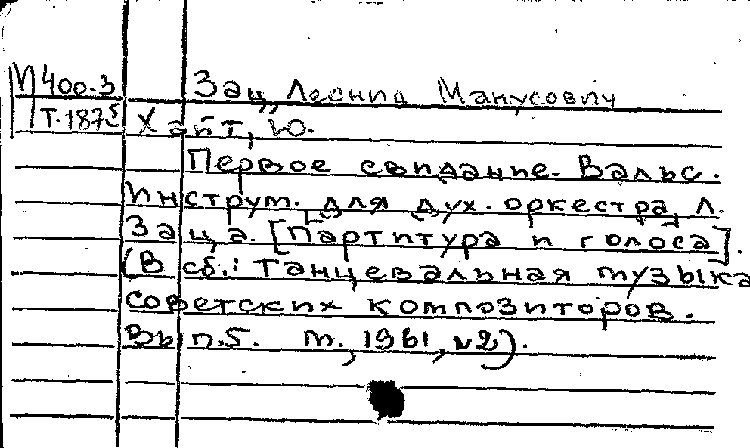 М400-3 Зац, Леонид Манусович
Т.1875 Хайт, Ю.
Первое свидание. Вальс.
Инструм. для дух. оркестра Л.
Заца. [Партитура и голоса].
(В сб.: Танцевальная музыка
советских композиторов.
Вып.5. М., 1961, №2).